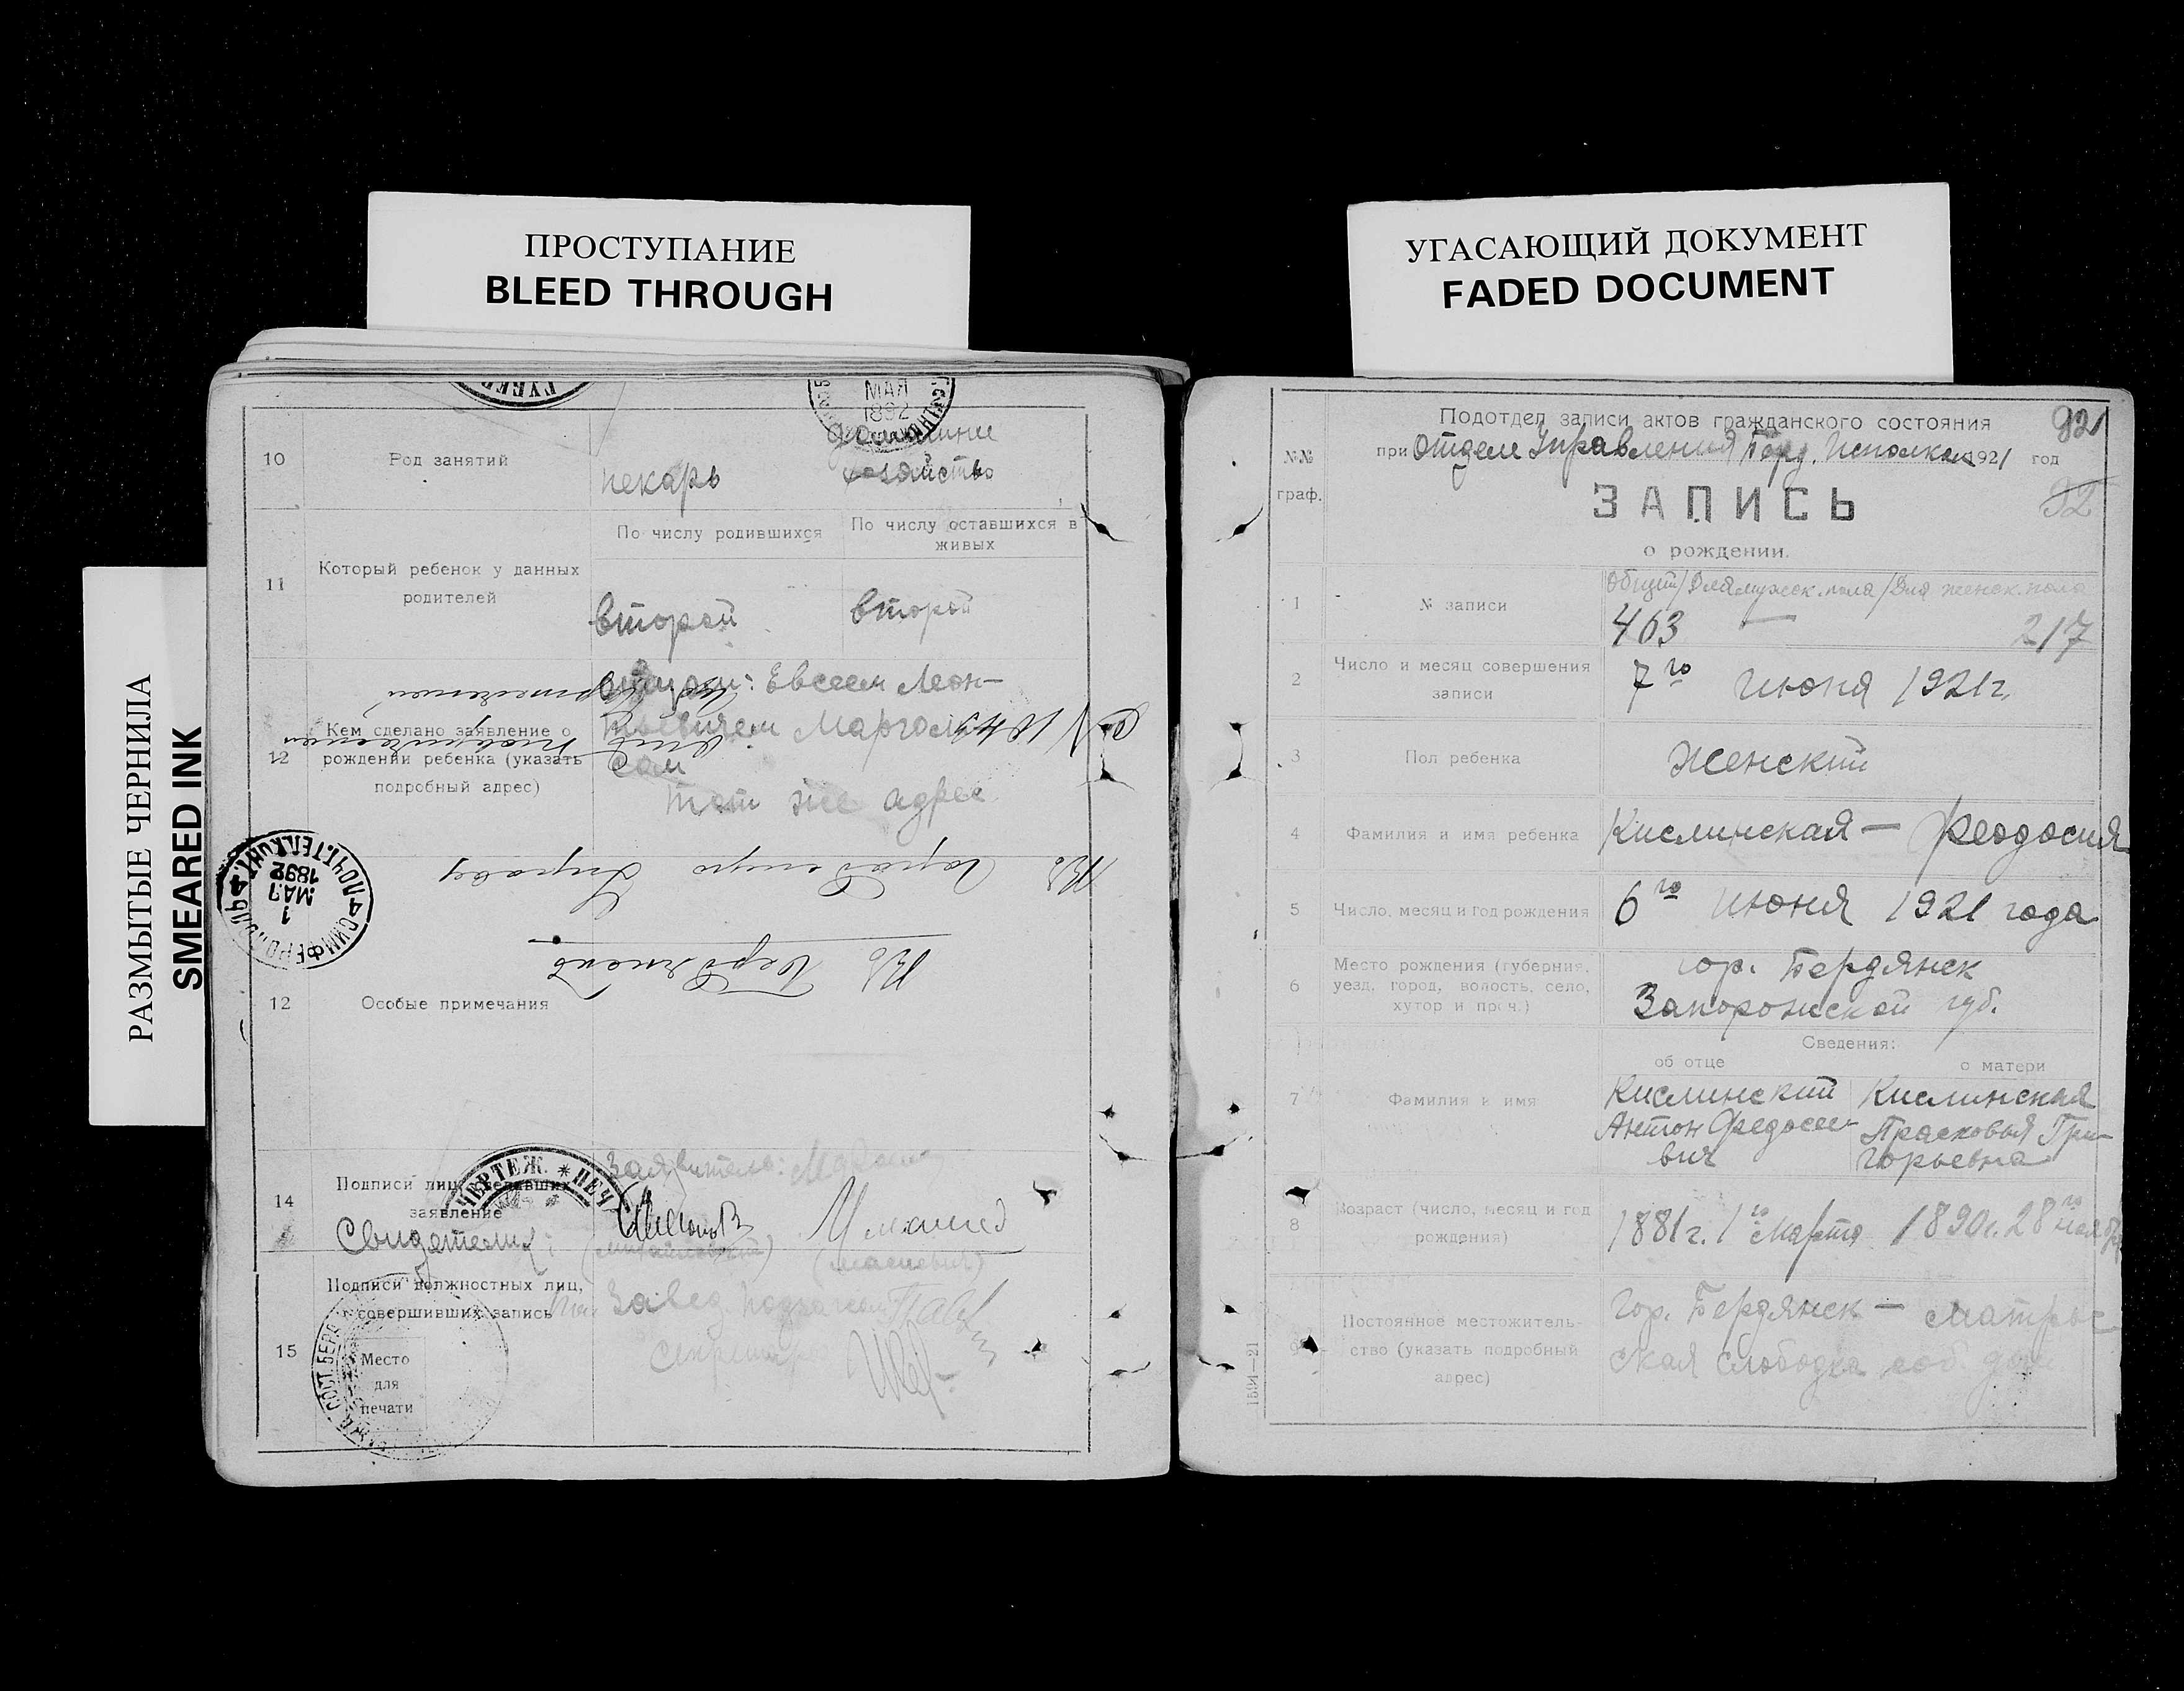 ПРОСТУПАНИЕ
BLEED THROUGH
УГАСАЮЩИЙ ДОКУМЕНТ
FADED DOCUMENT
РАЗМЫТЫЕ ЧЕРНИЛА
SMEARED INK
МАЯ
1892
10
Род занятий
пекарь
домашние
хозяйство
11
Который ребенок у данных
родителей
По числу родившихся
По числу оставшихся в
живых
второй
второй
12
Кем сделано заявление о
рождении ребенка (указать
подробный адрес)
отцом: Евсеем Леон-
тьевичем
тот же адрес
Городскую Управу
Въ Бердянскъ
СИМФЕРОПОЛЬ ПОЧТ. ТЕЛ. КОНТ.
1
МАЯ
1892
12
Особые примечания
14
Подписи лиц, сделавших
заявление
Свидетели:
Заявитель:
ЧЕРТЕЖ. * ПЕЧ
15
Подписи должностных лиц,
совершивших запись
Завед.
Секретарь
Место
для
печати
Подотдел записи актов гражданского состояния
92
при Отделе Управления Берд. Исполкома 1921 год
№№
граф.
ЗАПИСЬ
92
о рождении.
1
№ записи
Общий/Для мужск. пола/Для женск. пола
463 — 217
2
Число и месяц совершения
записи
7го Июня 1921 г.
3
Пол ребенка
Женский
4
Фамилия и имя ребенка
Кислинская — Феодосия
5
Число, месяц и год рождения
6го Июня 1921 года
6
Место рождения (губерния,
уезд, город, волость, село,
хутор и проч.)
гор. Бердянск
Запорожской губ.
Сведения:
об отце
о матери
7
Фамилия и имя
Кислинский
Антон Федосее-
вич
Кислинская
Прасковья Гри-
горьевна
8
Возраст (число, месяц и год
рождения)
1881 г. 1го Марта
1890 г. 28го ноября
9
Постоянное местожитель-
ство (указать подробный
адрес)
Гор. Бердянск — Матрос-
ская слободка соб. дом
1594—21